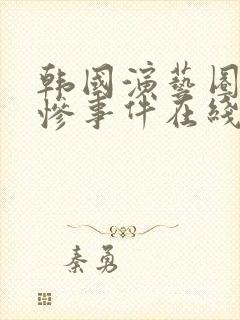 韩国演艺圈
惨事件在线
秦勇